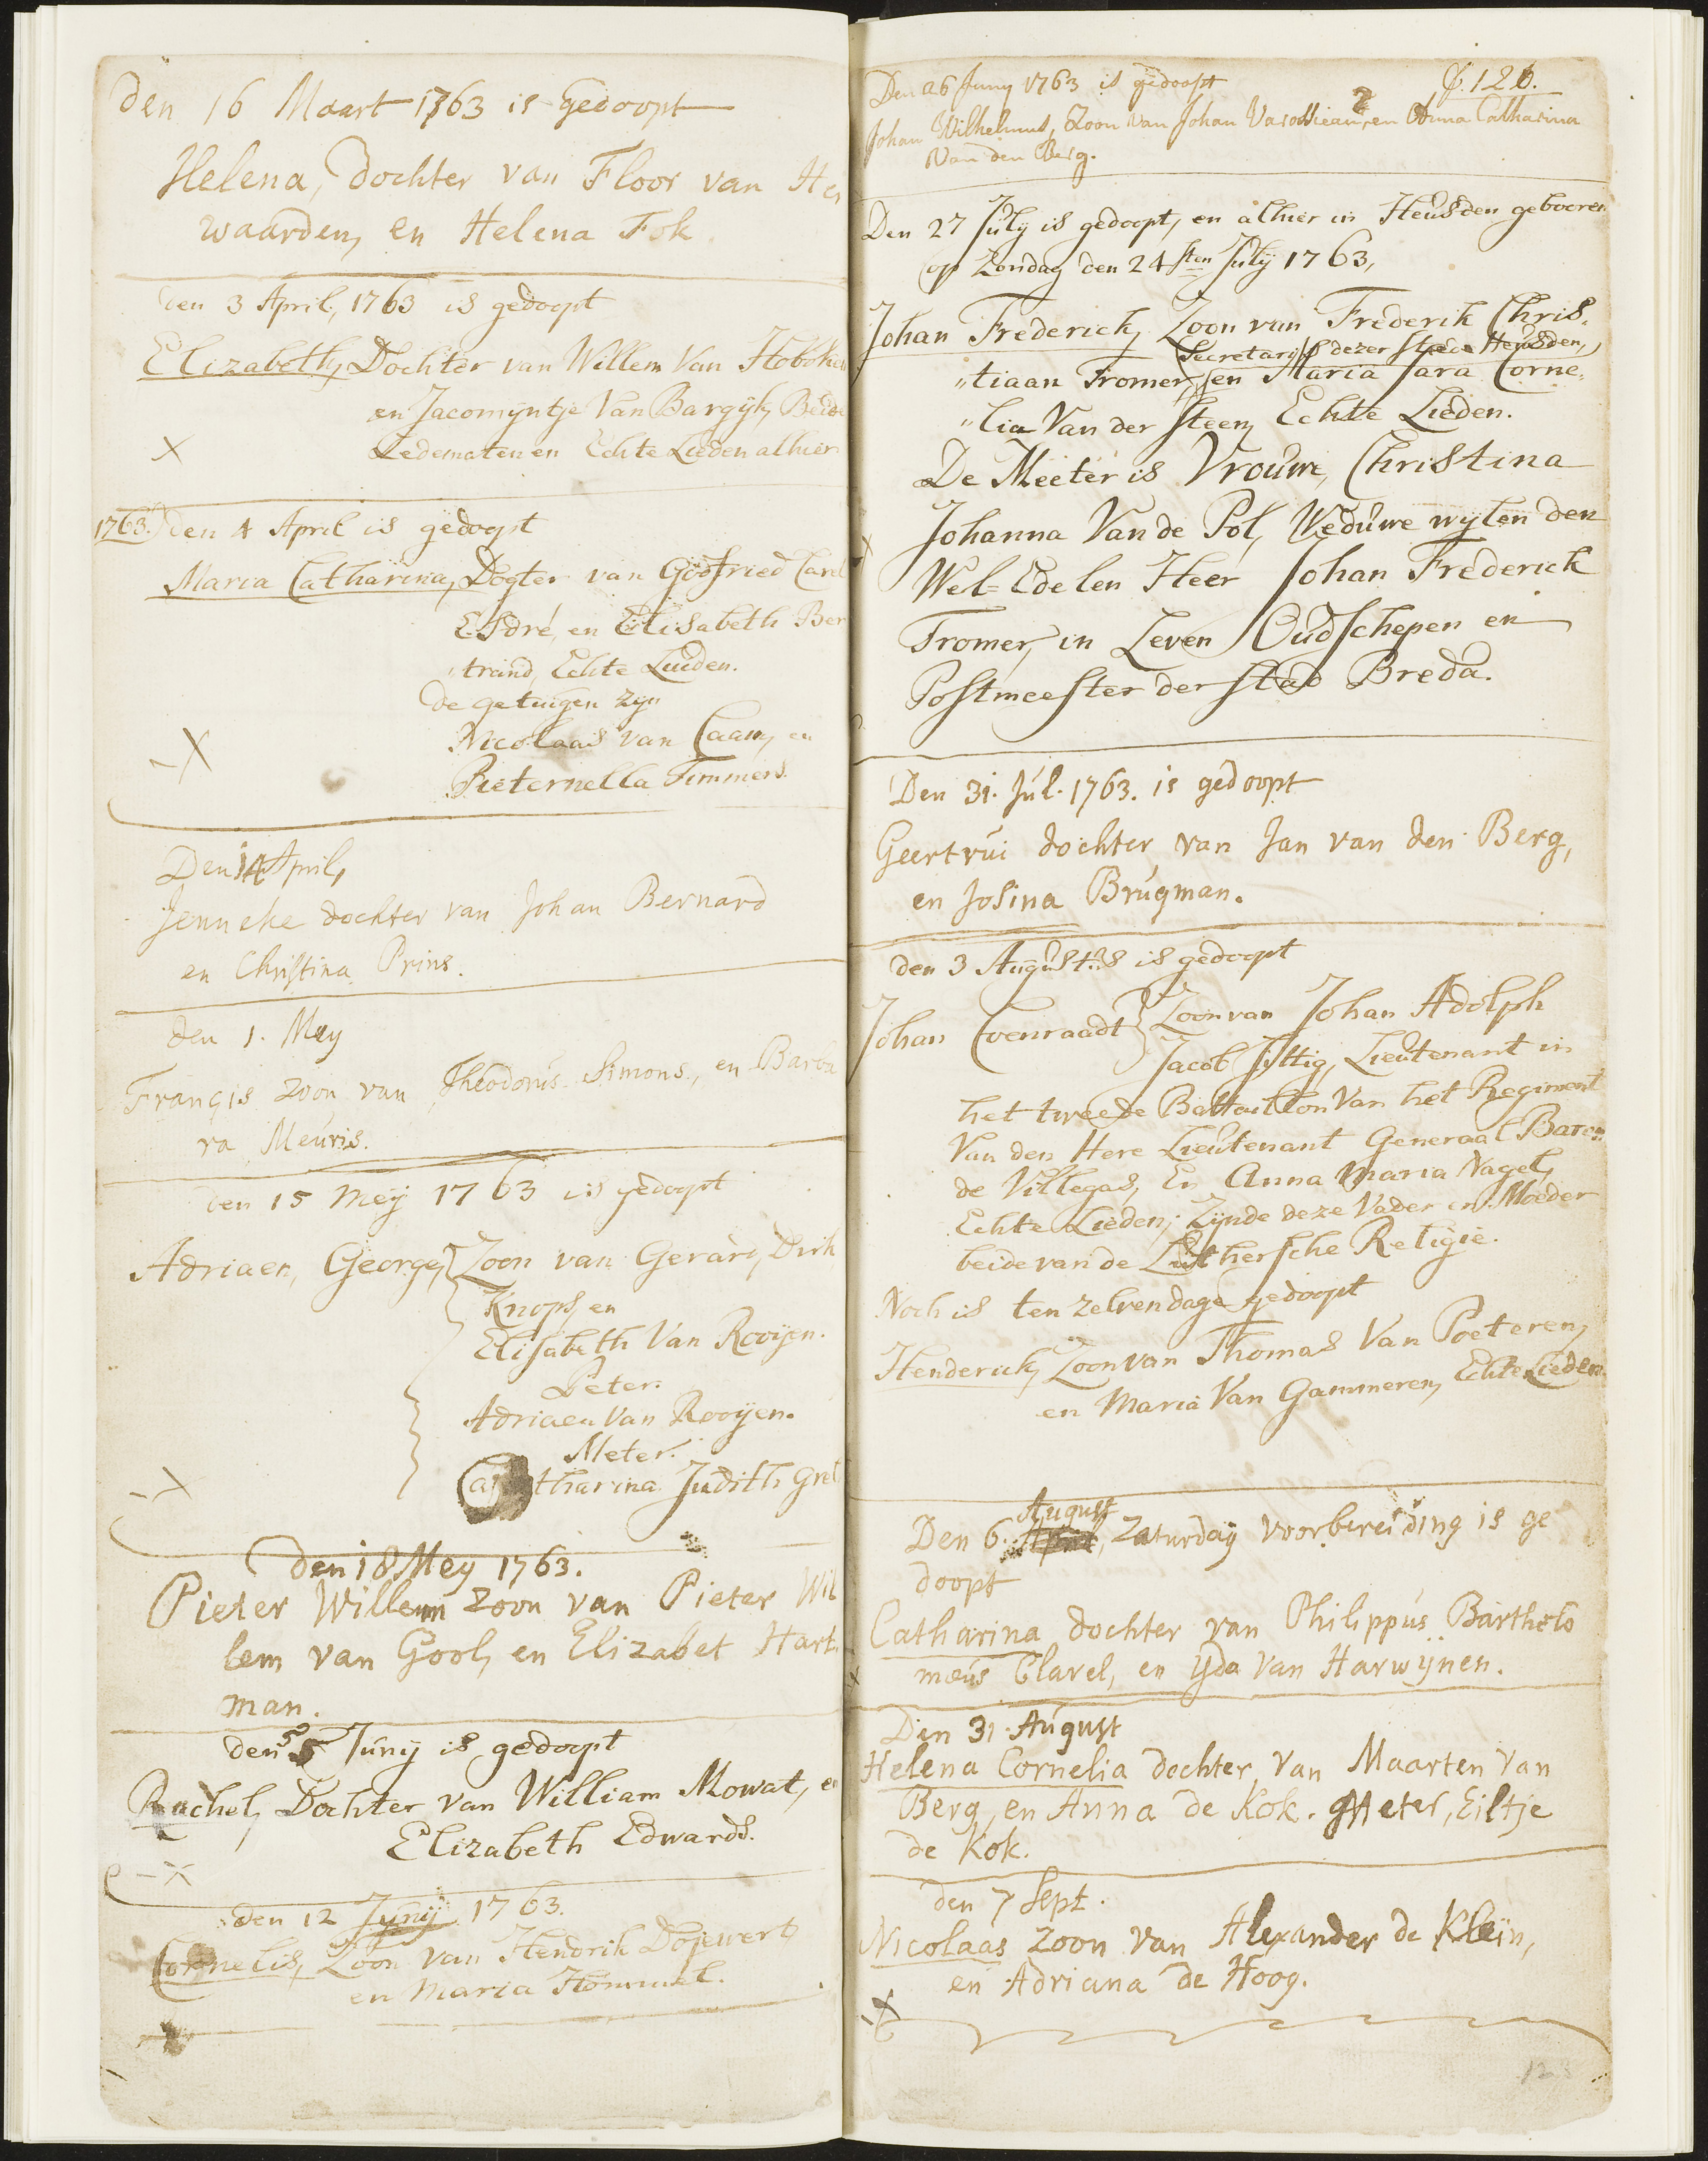 den 16 Maart 1763 is Gedoopt
Helena, dochter van Floor van Her
waarden, en Helena Fok
den 3 April, 1763 is gedoopt
Elizabeth, Dochter van Willem Van Hoboken
en Jacomyntje Van Bargyk, Beide
X Ledematen en Echte Lieden alhier
1763. den 4 April is gedoopt
Maria Catharina, Dogter van Godfried Carel
Esdré, en Elisabeth Ber
"trand, Echte Luiden.
de getuigen zijn
Nicolaas van Caam, en
X Pieternella Timmers.
Den 14 April,
Jenneke dochter van Johan Bernard
en Christina Prins.
den 1. Mey
Françis zoon van Theodorus Simons, en Barba
ra Meuris.
den 15 Meÿ 1763 is gedoopt
Adriaen, George, Zoon van Gerard, Dirk
Knops, en
Elisabeth Van Rooijen.
Peter.
Adriaen Van Rooijen.
Meter.
X Catharina Judith Grel
den 18 Mey 1763.
Pieter Willem zoon van Pieter Wil
lem van Gool, en Elizabet Hart-
man.
den 5 Juny is gedoopt
Rachel, Dochter van William Mowat, en
Elizabeth Edwards.
X
den 12 Junij 1763.
Cornelis, Zoon van Hendrik Dojewert
en Maria Hommel.
f. 126.
Den 26 Juny 1763 is gedoopt
Johan Wilhelmus, Zoon van Johan Varossieau, en Anna Catharina
Van den Berg.
Den 27 July is gedoopt, en alhier in Heusden gebooren
op Zondag den 24sten July 1763,
Johan Frederick, Zoon van Frederik Chris-
Secretaris dezer stede Heusden,
"tiaan Tromer, en Maria Sara Corne-
"lia Van der Steen, Echte Lieden.
De Meeter is Vrouwe, Christina
Johanna Van de Pol, Weduwe wylen den
Wel-Edelen Heer Johan Frederick
Tromer, in Leven Oudschepen en
Postmeester der stad Breda.
Den 31. Jul. 1763. is gedoopt
Geertrui dochter van Jan van den Berg,
en Josina Brugman.
den 3 Augustus is gedoopt
Johan Coenraadt} Zoon van Johan Adolph
Jacob Sittig, Lieutenant in
het tweede Battaillon Van het Regiment
Van den Here Lieutenant Generaal Baron
de Villegas, En Anna Maria Nagel,
Echte Lieden; Zijnde deze Vader en Moeder
beide van de Luthersche Religie.
Noch is ten zelvendage gedoopt
Henderick, Zoon van Thomas Van Poeteren,
en Maria Van Gammeren, Echte Lieden
August
Den 6. April, Zaturdag voorbereiding is ge
doopt
Catharina dochter van Philippus Bartholo
mæus Clavel, en Yda Van Harwijnen.
Den 31 August
Helena Cornelia dochter van Maarten Van
Berg, en Anna de Kok. Meter, Eiltje
de Kok.
den 7 Sept.
Nicolaas zoon van Alexander de Klein,
en Adriana de Hoog.
X